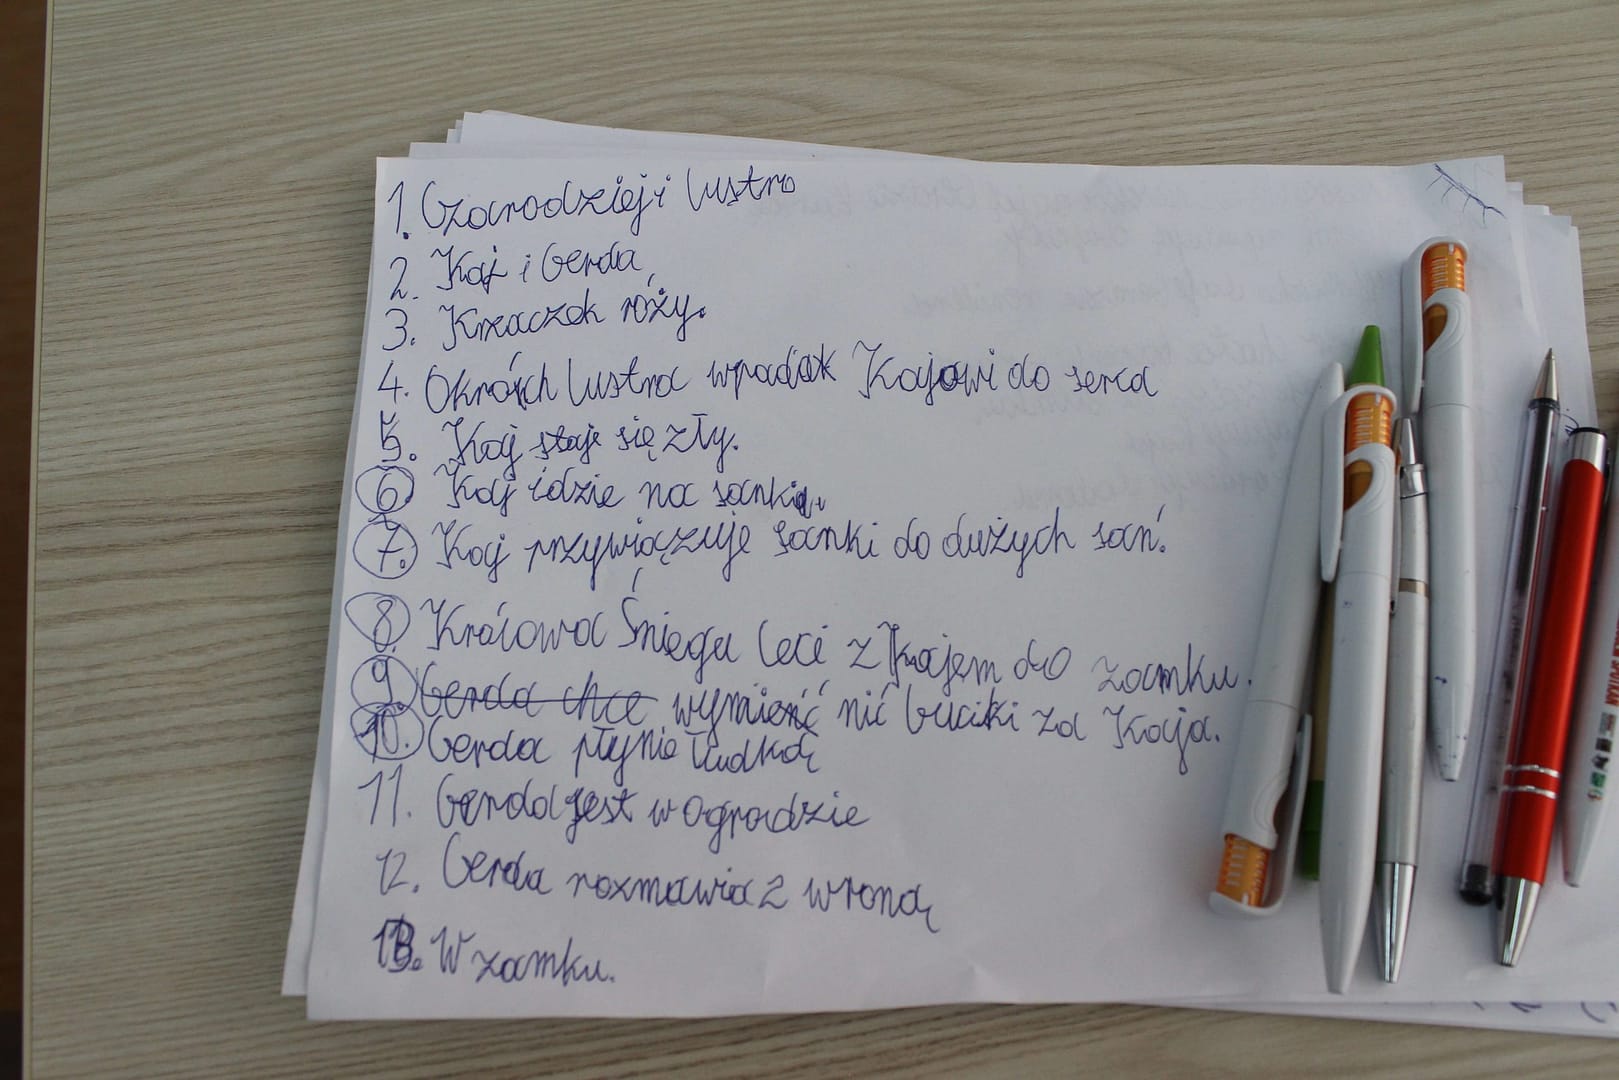 1. Czarodziej i lustro
2. Kaj i Gerda
3. Krzaczek róży.
4. Okruch lustra wpadak Kajowi do serca
5. Kaj staje się zły.
6. Kaj idzie na sanki.
7. Kaj przywiązuje sanki do dużych sań.
8. Królowa Śniegu leci z Kajem do zamku.
9. Gerda chce wymienić nić buciki za Kaja.
10. Gerda płynie łudką
11. Gerda jest w ogrodzie
12. Gerda rozmawia z wroną
13. W zamku.